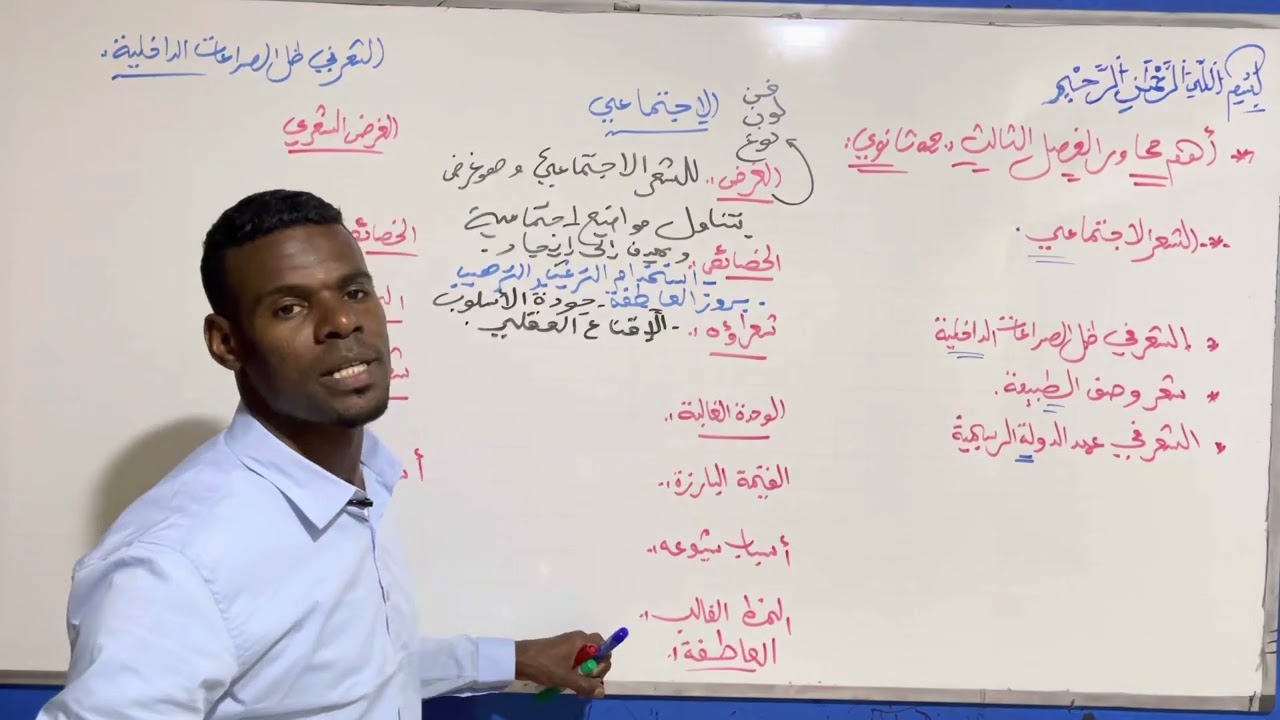 بِسْمِ اللَّهِ الرَّحْمَنِ الرَّحِيْمِ
* أهم محاور الفصل الثالث د 2 ثانوي:
*- الشعر الاجتماعي.
* الشعر في ظل الصراعات الداخلية
* شعر وصف الطبيعة.
* الشعر في عهد الدولة الرستمية
الاجتماعي
فن
لون
نوع
الغرض: الشعر الاجتماعي وهو غرض
يتناول مواضيع اجتماعية
ويهدف إلى إيجاد
الخصائص:
- استخدام الترغيب والترهيب
- بروز العاطفة - جودة الأسلوب
- الإقناع العقلي.
شعراؤه:
الوحدة الغالبة:
القيمة البارزة:
أسباب شيوعه:
النمط الغالب:
العاطفة:
الشعر في ظل الصراعات الداخلية.
الغرض الشعري
الخصائص